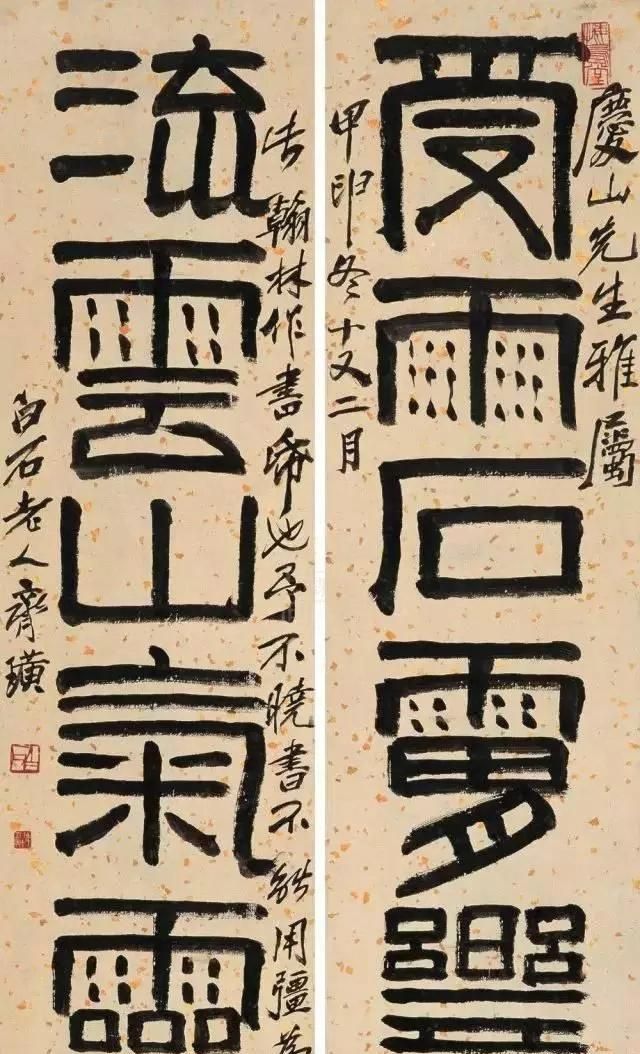 慶山先生雅屬
受雨石
甲冬十又二月
此翰林作書帋也予不曉書不能用彊為
流雲山氣靈
白石老人齊璜